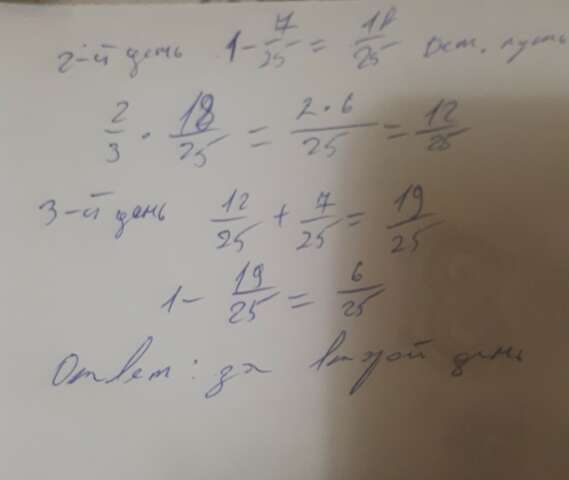 2-й день 1 - 7/25 = 18/25 ост. путь
2/3 · 18/25 = 2·6/25 = 12/25
3-й день 12/25 + 7/25 = 19/25
1 - 19/25 = 6/25
Ответ: за второй день